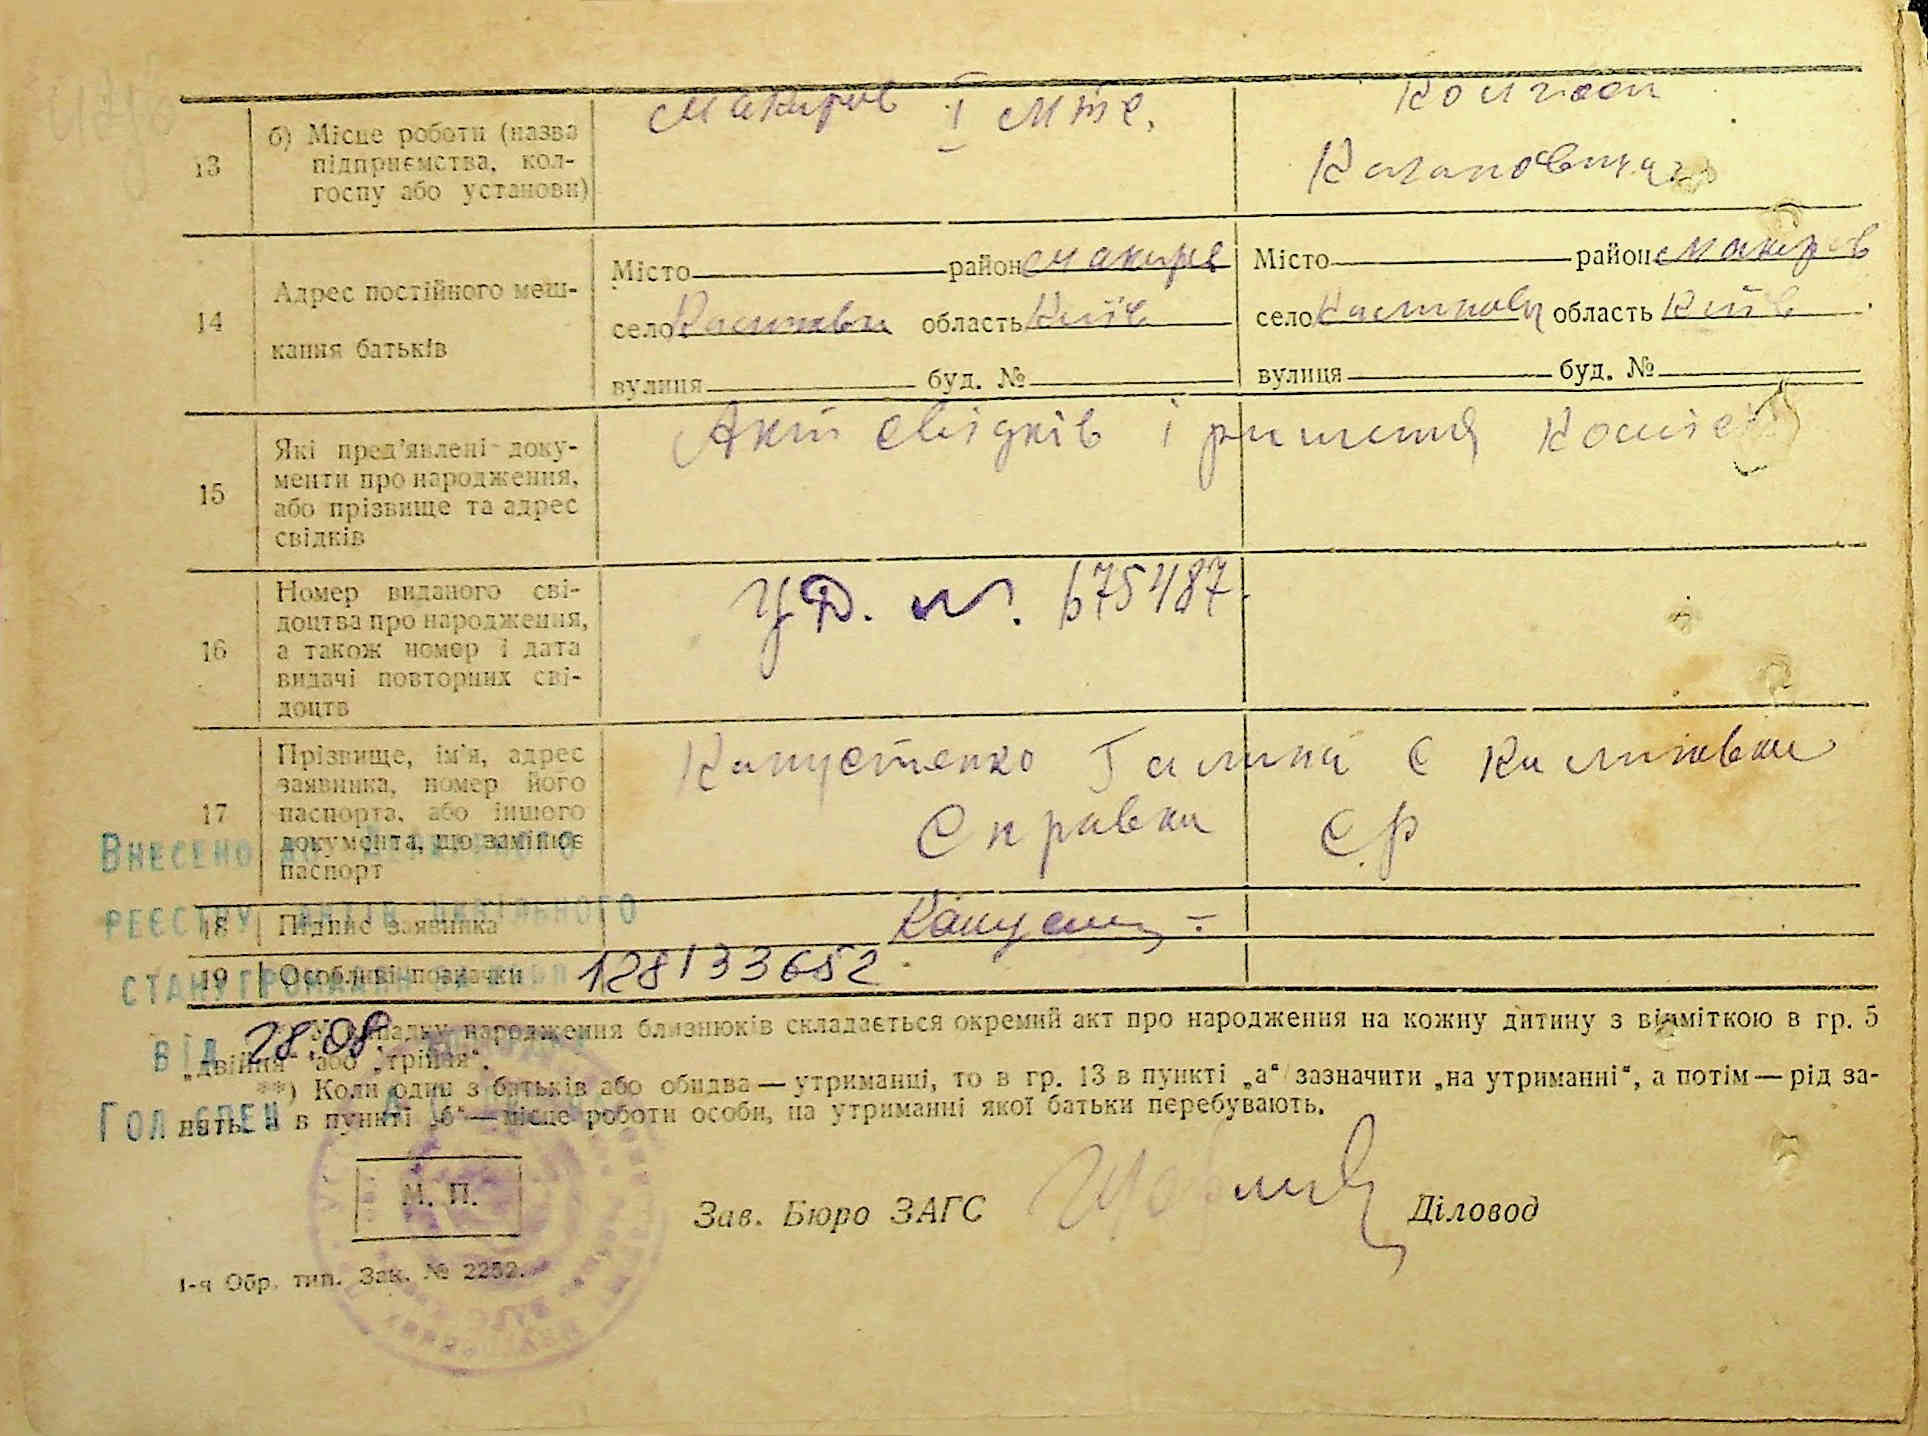 13 б) Місце роботи (назва підприємства, кол-госпу або установи)
Макарів І МТС.
Колгосп
14 Адрес постійного меш-
кання батьків
Місто район Макарів
село область Київ
вулиця буд. №
Місто район Макарів
село область Київ
вулиця буд. №
15 Які пред'явлені доку-
менти про народження,
або прізвище та адрес
свідків
Акт свідків і рішення комісії
16 Номер виданого сві-
доцтва про народження,
а також номер і дата
видачі повторних сві-
доцтв
УД. №. 675487.
17 Прізвище, ім'я, адрес
заявника, номер його
паспорта, або іншого
документа, що замінює
паспорт
Капустенко Галина с Калинівка
Справка СР
18 Підпис заявника
19 Особливі позначки 128133652
Внесено до Державного
реєстру актів цивільного
стану громадян
від 28.08.
Гол спец
*) У випадку народження близнюків складається окремий акт про народження на кожну дитину з відміткою в гр. 5
„двійня“ або „трійня“.
**) Коли один з батьків або обидва — утриманці, то в гр. 13 в пункті „а“ зазначити „на утриманні“, а потім — рід за-
нять в пункті „б“ — місце роботи особи, на утриманні якої батьки перебувають.
М. П.
Зав. Бюро ЗАГС
Діловод
1-я Обр. тип. Зак. № 2252.